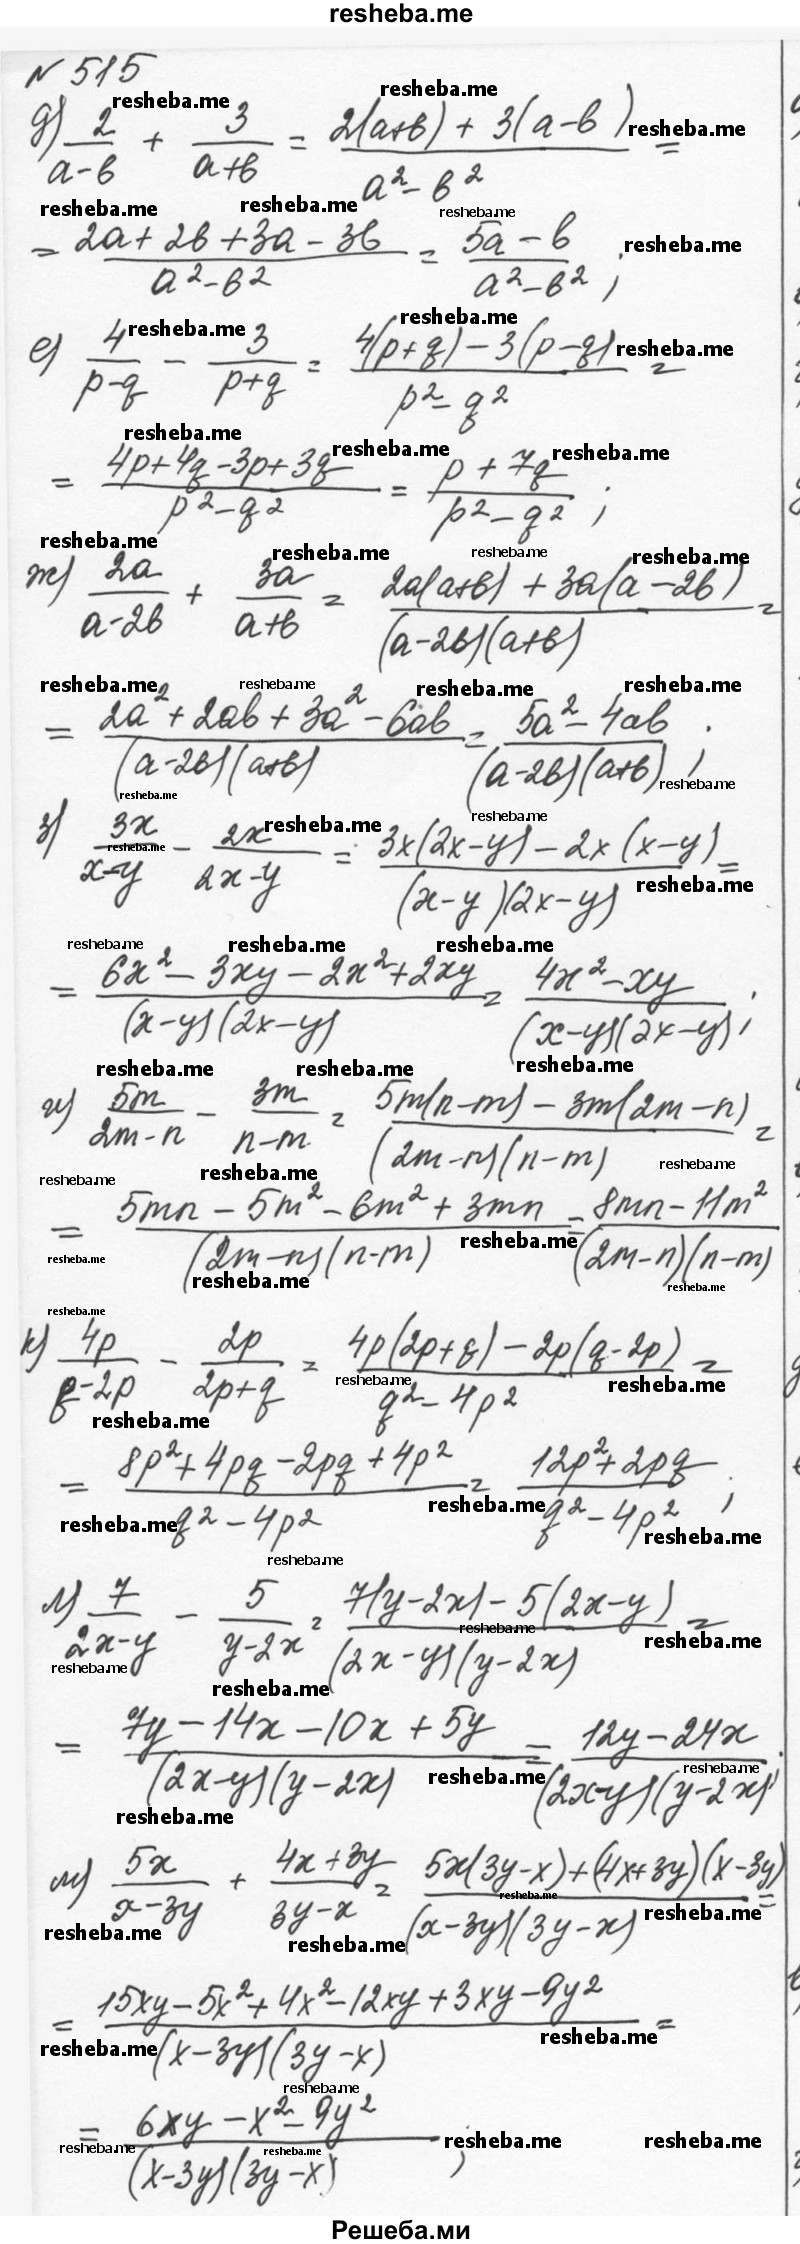 resheba.me
N 515
д) 2/(a-b) + 3/(a+b) = (2(a+b) + 3(a-b))/(a²-b²) =
= (2a+2b+3a-3b)/(a²-b²) = (5a-b)/(a²-b²) ;
е) 4/(p-q) - 3/(p+q) = (4(p+q)-3(p-q))/(p²-q²) =
= (4p+4q-3p+3q)/(p²-q²) = (p+7q)/(p²-q²) ;
ж) 2a/(a-2b) + 3a/(a+b) = (2a(a+b)+3a(a-2b))/((a-2b)(a+b)) =
= (2a²+2ab+3a²-6ab)/((a-2b)(a+b)) = (5a²-4ab)/((a-2b)(a+b)) ;
з) 3x/(x-y) - 2x/(2x-y) = (3x(2x-y)-2x(x-y))/((x-y)(2x-y)) =
= (6x²-3xy-2x²+2xy)/((x-y)(2x-y)) = (4x²-xy)/((x-y)(2x-y)) ;
и) 5m/(2m-n) - 3m/(n-m) = (5m(n-m)-3m(2m-n))/((2m-n)(n-m)) =
= (5mn-5m²-6m²+3mn)/((2m-n)(n-m)) = (8mn-11m²)/((2m-n)(n-m))
к) 4p/(q-2p) - 2p/(2p+q) = (4p(2p+q)-2p(q-2p))/(q²-4p²) =
= (8p²+4pq-2pq+4p²)/(q²-4p²) = (12p²+2pq)/(q²-4p²) ;
л) 7/(2x-y) - 5/(y-2x) = (7(y-2x)-5(2x-y))/((2x-y)(y-2x)) =
= (7y-14x-10x+5y)/((2x-y)(y-2x)) = (12y-24x)/((2x-y)(y-2x)) ;
м) 5x/(x-3y) + (4x+3y)/(3y-x) = (5x(3y-x)+(4x+3y)(x-3y))/((x-3y)(3y-x)) =
= (15xy-5x²+4x²-12xy+3xy-9y²)/((x-3y)(3y-x)) =
= (6xy-x²-9y²)/((x-3y)(3y-x)) ;
Решеба.ми